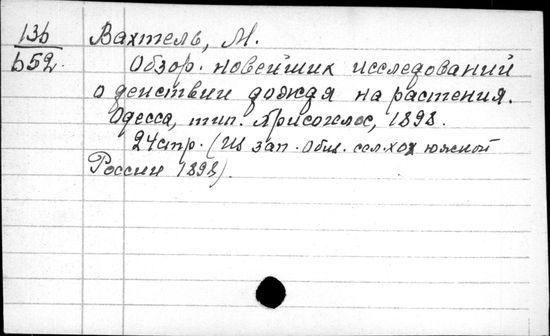 136
b52.
Вахтель, М.
Обзор. новейших исследований
о действии дождя на растения.
Одесса, тип. Хрисогелос, 1898.
24стр. (Из зап. Общ. сел.хоз южной
России 1898).